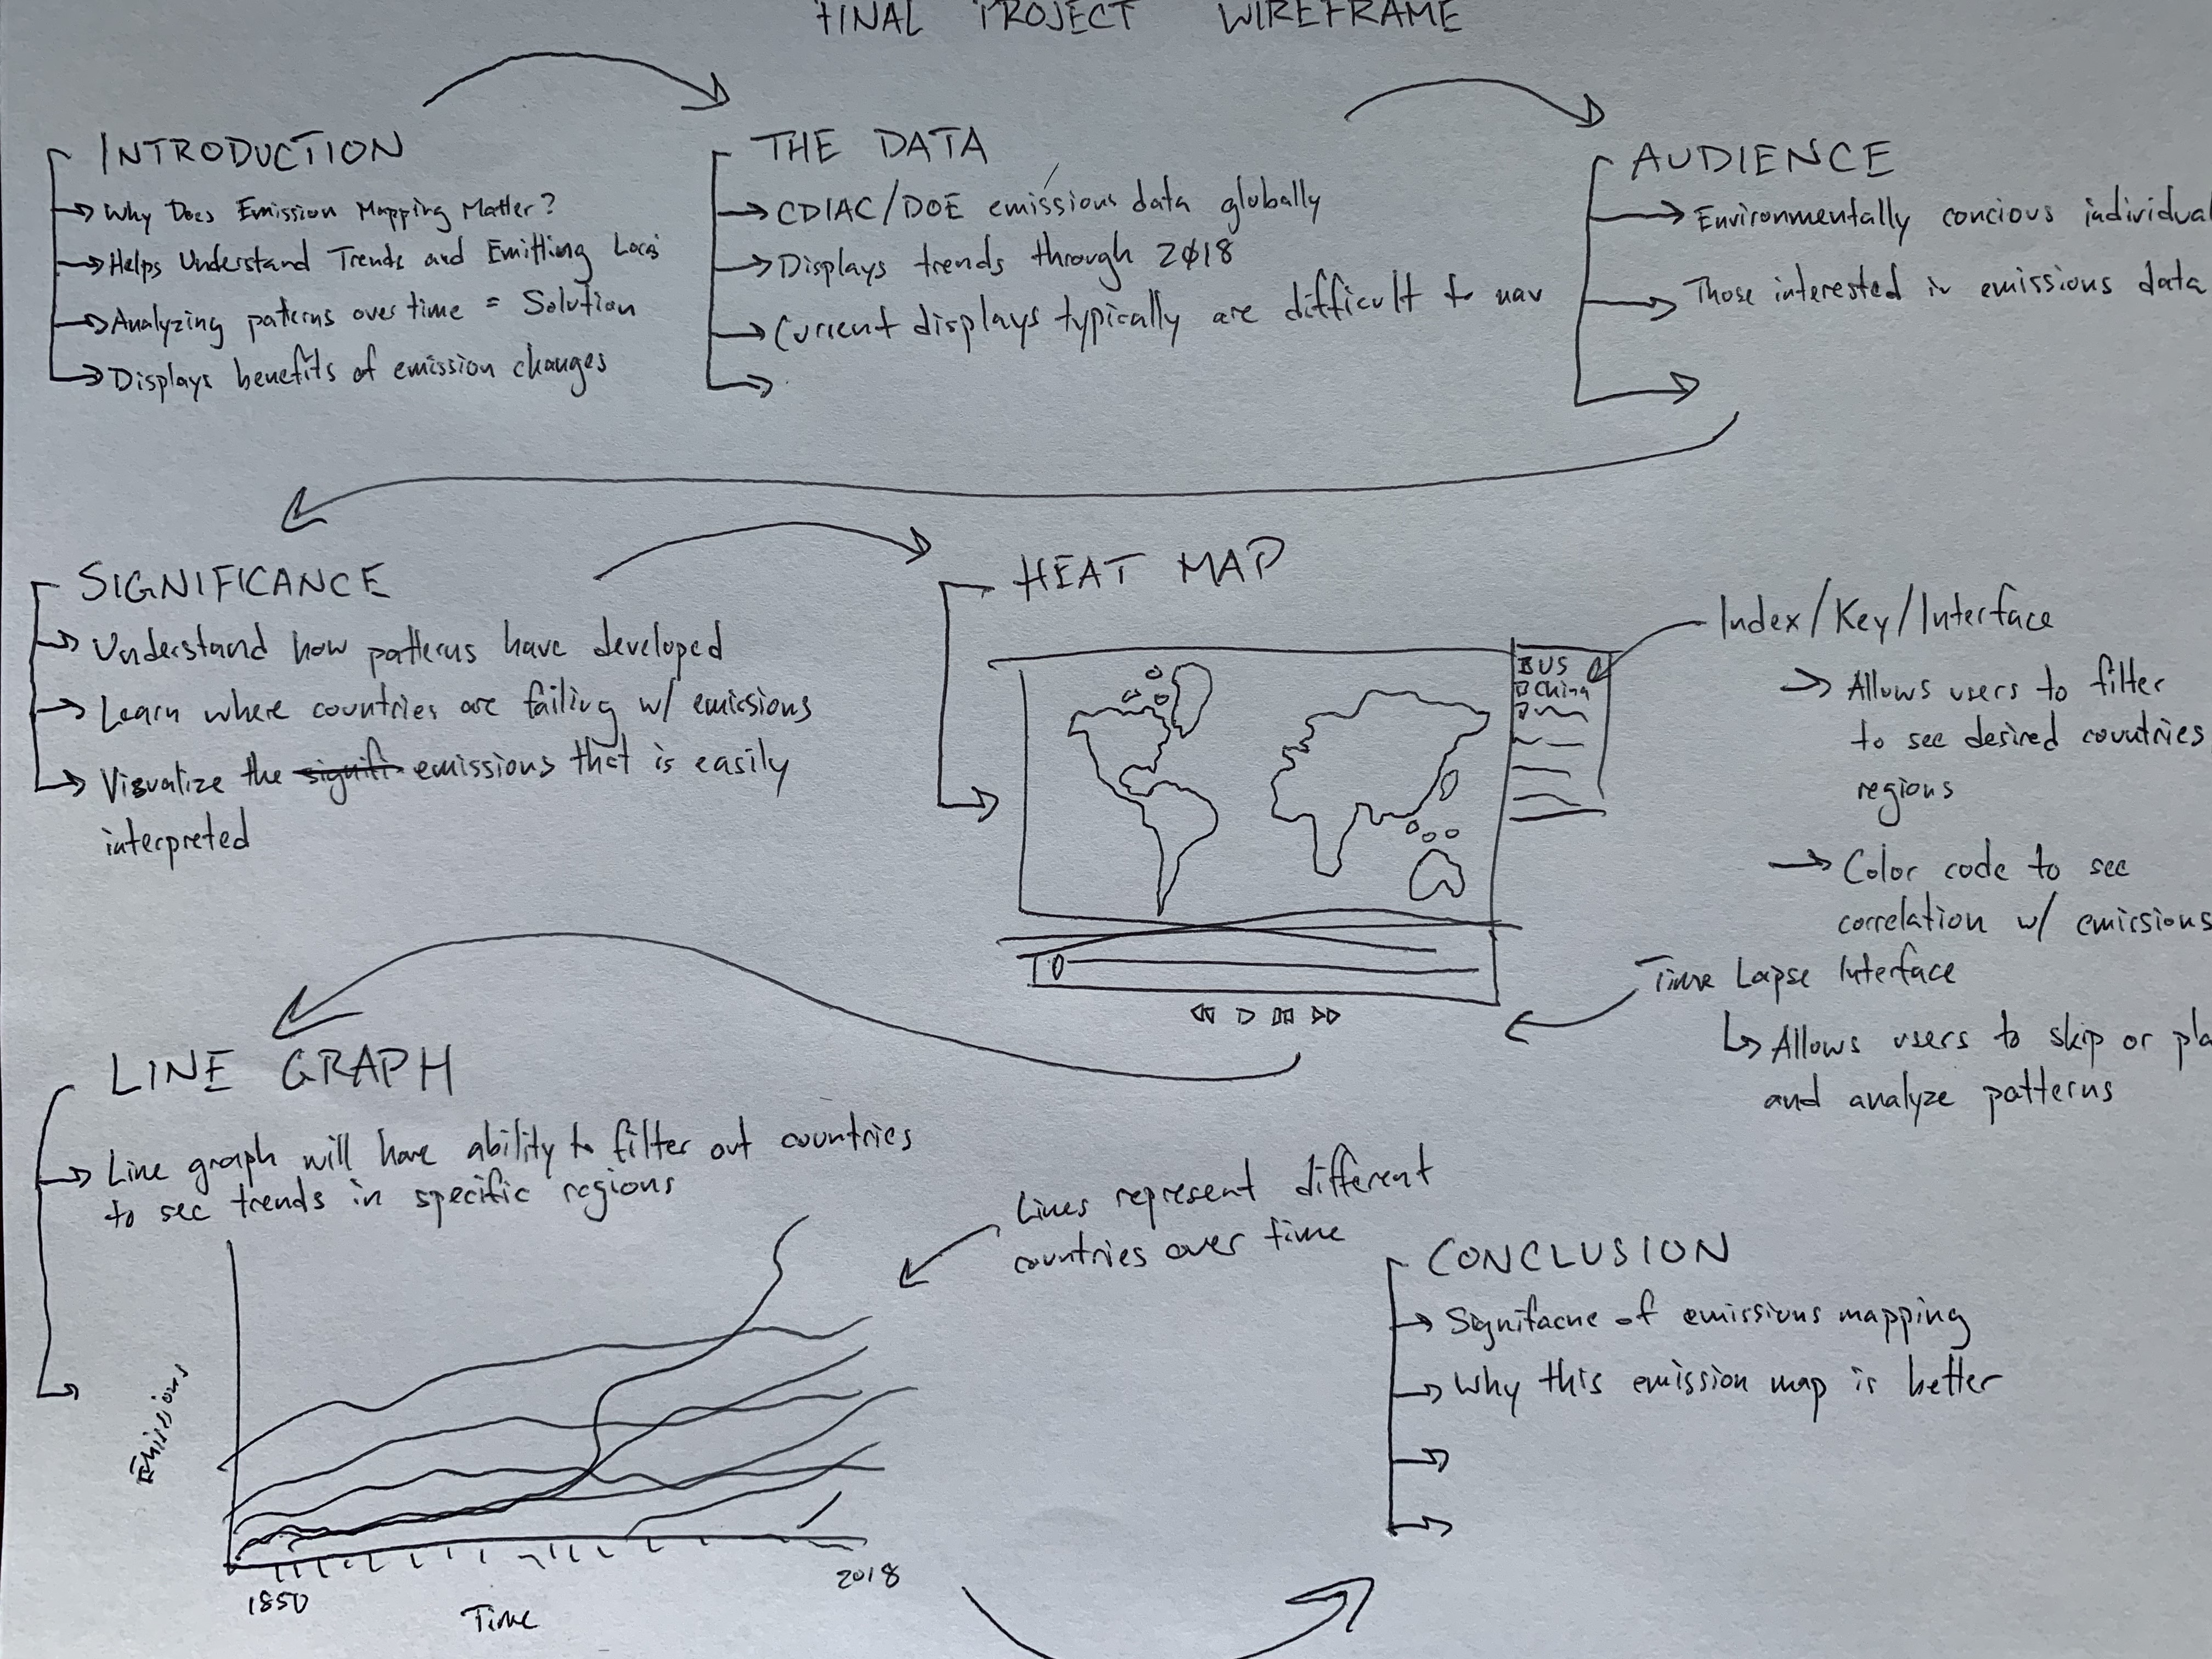 FINAL PROJECT WIREFRAME
INTRODUCTION
Why Does Emission Mapping Matter?
Helps Understand Trends and Emitting Loci
Analyzing patterns over time = Solution
Displays benefits of emission changes
THE DATA
CDIAC/DOE emissions data globally
Displays trends through 2018
Current displays typically are difficult to nav
AUDIENCE
Environmentally concious individual
Those interested in emissions data
SIGNIFICANCE
Understand how patterns have developed
Learn where countries are failing w/ emissions
Visualize the emissions that is easily
interpreted
HEAT MAP
US
China
Index/Key/Interface
Allows users to filter
to see desired countries
regions
Color code to see
correlation w/ emissions
Time Lapse Interface
Allows users to skip or pla
and analyze patterns
LINE GRAPH
Line graph will have ability to filter out countries
to see trends in specific regions
Emissions
1850
Time
2018
Lines represent different
countries over time
CONCLUSION
Signifacne of emissions mapping
Why this emission map is better